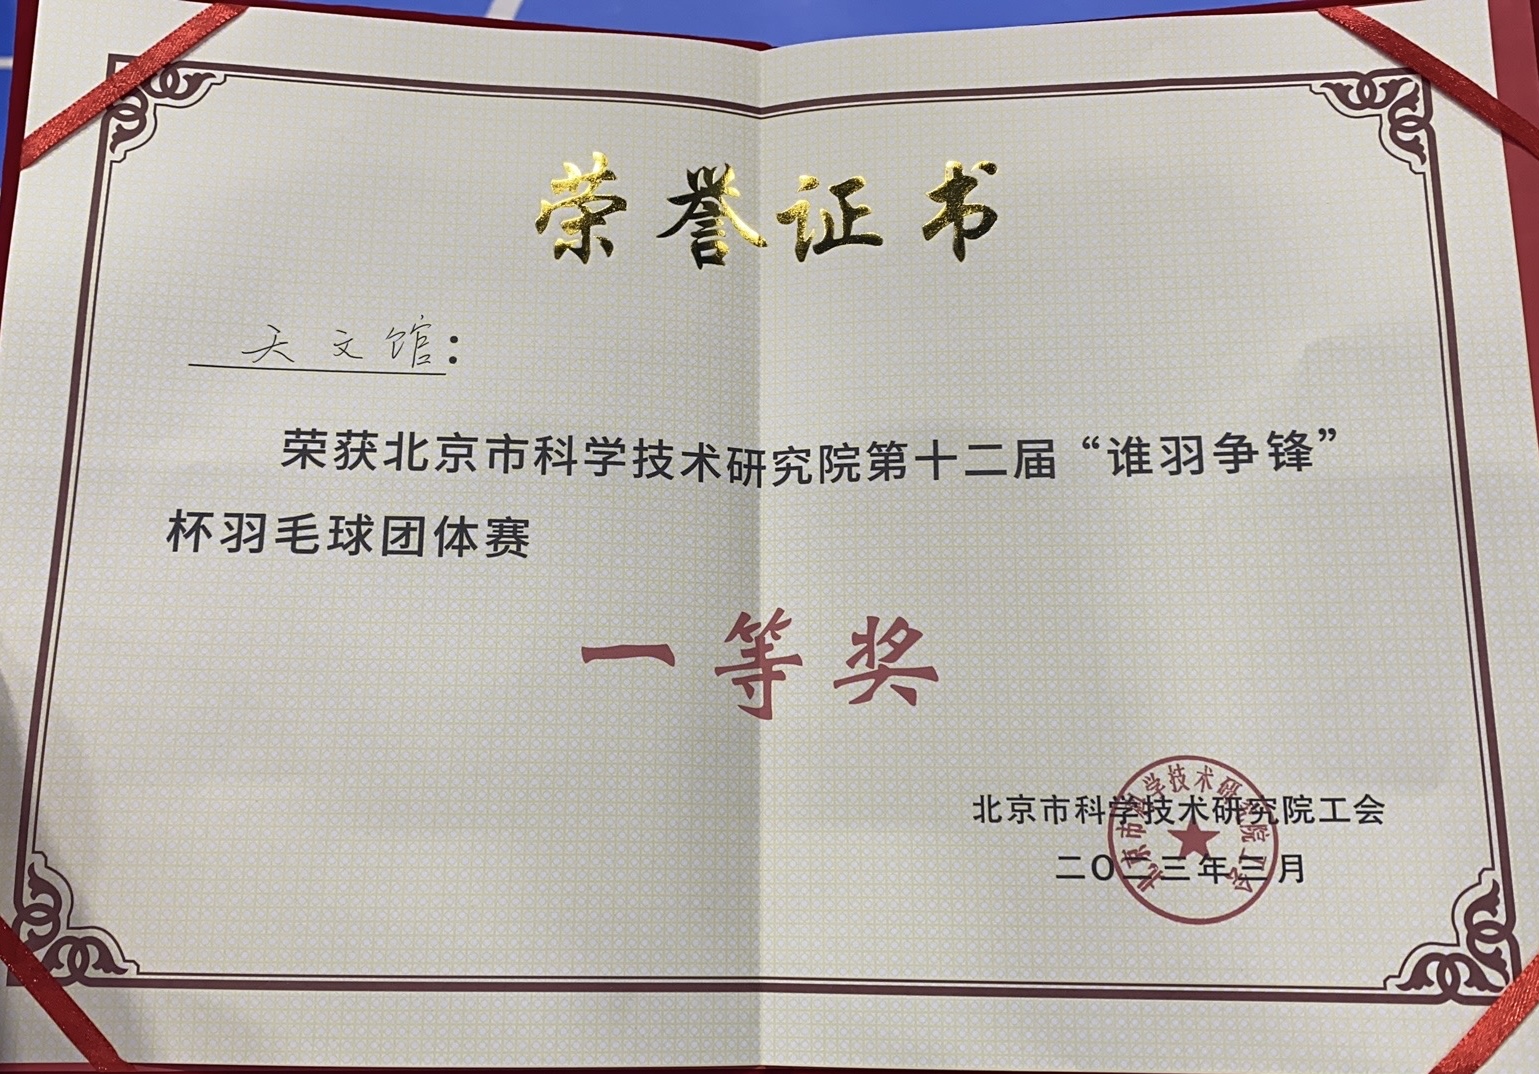 荣誉证书
天文馆：
荣获北京市科学技术研究院第十二届“谁羽争锋”
杯羽毛球团体赛
一等奖
北京市科学技术研究院工会
二〇二三年三月
北京市科学技术研究院工会